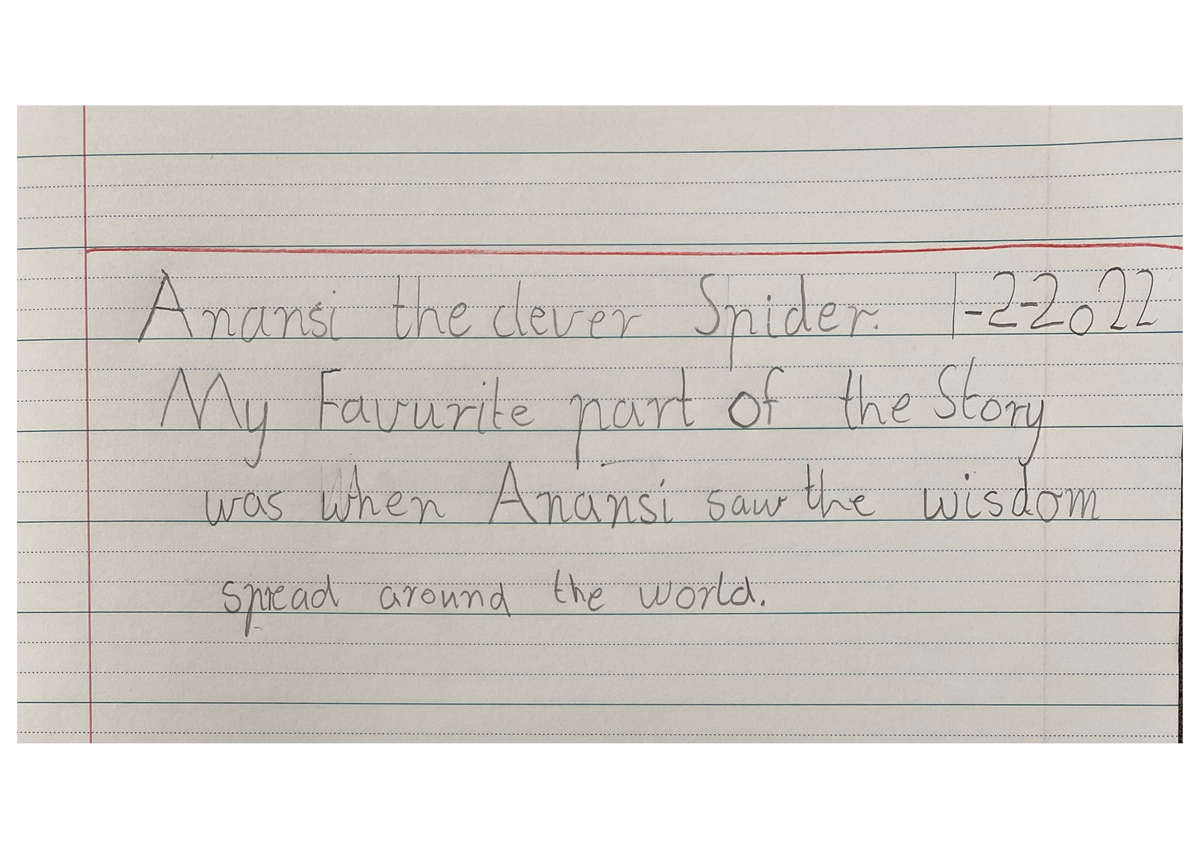 Anansi the clever Spider. 1-2-2022
My Favurite part of the Story
was when Anansi saw the wisdom
spread around the world.